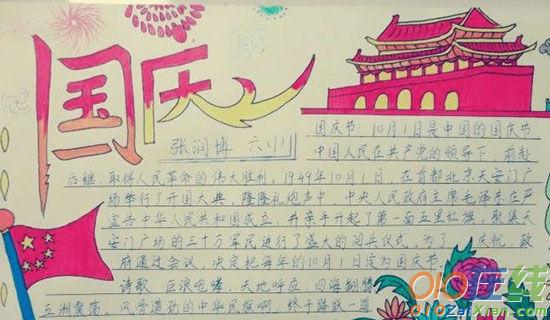 国庆
张润博 六(1)
国庆节 10月1日是中国的国庆节,
中国人民在共产党的领导下,前赴
后继,取得人民革命的伟大胜利,1949年10月1日,在首都北京天安门广
场举行了开国大典,隆隆礼炮声中,中央人民政府主席毛泽东庄严
宣告中华人民共和国成立,并亲手升起了第一面五星红旗,聚集天
安门广场的三十万军民进行了盛大的阅兵仪式,为了 庆祝,政
府通过会议,决定把每年的10月1日定为国庆节。
诗歌:巨浪咆哮,天地呼应,四海翻腾
五洲震荡,风雷激励的中华民族啊,终于踏
在线
ZaiXian.com